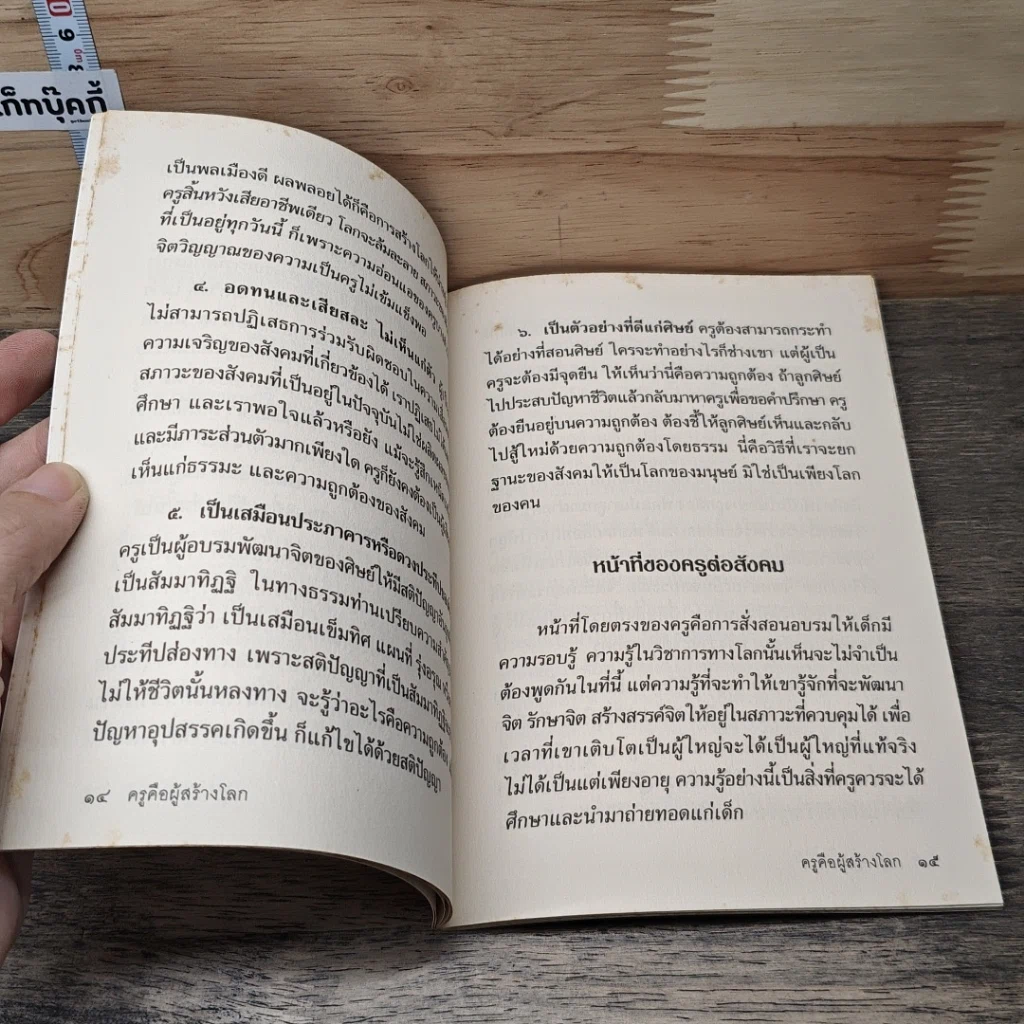 เก็ทบุ๊คกี้
6
เป็นพลเมืองดี ผลพลอยได้ก็คือการสร้างโลก
ครูสิ้นหวังเสียอาชีพเดียว โลกจะล้มละลาย
ที่เป็นอยู่ทุกวันนี้ ก็เพราะความอ่อนแอของ
จิตวิญญาณของความเป็นครูไม่เข้มแข็งพอ
๔. อดทนและเสียสละ ไม่เห็นแก่ตัว
ไม่สามารถปฏิเสธการร่วมรับผิดชอบในความ
ความเจริญของสังคมที่เกี่ยวข้องได้ เราปฏิเสธ
สภาวะของสังคมที่เป็นอยู่ในปัจจุบันไม่ใช่ผลิตผล
ศึกษา และเราพอใจแล้วหรือยัง แม้จะรู้สึก
และมีภาระส่วนตัวมากเพียงใด ครูก็ยังคงต้องเป็นผู้
เห็นแก่ธรรมะ และความถูกต้องของสังคม
๕. เป็นเสมือนประภาคารหรือดวงประทีป
ครูเป็นผู้อบรมพัฒนาจิตของศิษย์ให้มีสติปัญญา
เป็นสัมมาทิฏฐิ ในทางธรรมท่านเปรียบความ
สัมมาทิฏฐิว่า เป็นเสมือนเข็มทิศ แผนที่ รุ่งอรุณ
ประทีปส่องทาง เพราะสติปัญญาที่เป็นสัมมาทิฏฐิ
ไม่ให้ชีวิตนั้นหลงทาง จะรู้ว่าอะไรคือความถูกต้อง
ปัญหาอุปสรรคเกิดขึ้น ก็แก้ไขได้ด้วยสติปัญญา
๑๔ ครูคือผู้สร้างโลก
๖. เป็นตัวอย่างที่ดีแก่ศิษย์ ครูต้องสามารถกระทำ
ได้อย่างที่สอนศิษย์ ใครจะทำอย่างไรก็ช่างเขา แต่ผู้เป็น
ครูจะต้องมีจุดยืน ให้เห็นว่านี่คือความถูกต้อง ถ้าลูกศิษย์
ไปประสบปัญหาชีวิตแล้วกลับมาหาครูเพื่อขอคำปรึกษา ครู
ต้องยืนอยู่บนความถูกต้อง ต้องชี้ให้ลูกศิษย์เห็นและกลับ
ไปสู้ใหม่ด้วยความถูกต้องโดยธรรม นี่คือวิธีที่เราจะยก
ฐานะของสังคมให้เป็นโลกของมนุษย์ มิใช่เป็นเพียงโลก
ของคน
หน้าที่ของครูต่อสังคม
หน้าที่โดยตรงของครูคือการสั่งสอนอบรมให้เด็กมี
ความรอบรู้ ความรู้ในวิชาการทางโลกนั้นเห็นจะไม่จำเป็น
ต้องพูดกันในที่นี้ แต่ความรู้ที่จะทำให้เขารู้จักที่จะพัฒนา
จิต รักษาจิต สร้างสรรค์จิตให้อยู่ในสภาวะที่ควบคุมได้ เพื่อ
เวลาที่เขาเติบโตเป็นผู้ใหญ่จะได้เป็นผู้ใหญ่ที่แท้จริง
ไม่ได้เป็นแต่เพียงอายุ ความรู้อย่างนี้เป็นสิ่งที่ครูควรจะได้
ศึกษาและนำมาถ่ายทอดแก่เด็ก
ครูคือผู้สร้างโลก ๑๕